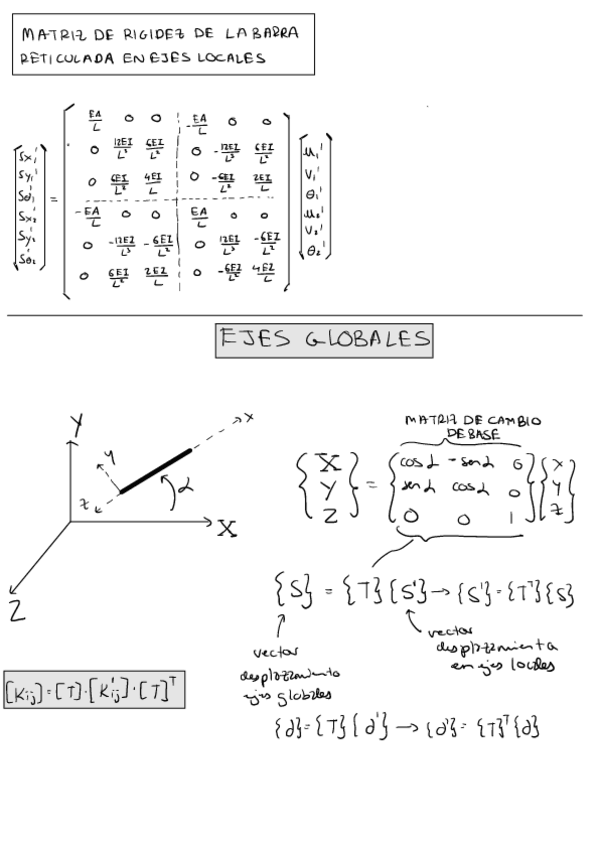 MATRIZ DE RIGIDEZ DE LA BARRA
RETICULADA EN EJES LOCALES
{Sx₁' Sy₁' Sθ₁' Sx₂' Sy₂' Sθ₂'} =
EA/L 0 0 -EA/L 0 0
0 12EI/L³ 6EI/L² 0 -12EI/L³ 6EI/L²
0 6EI/L² 4EI/L 0 -6EI/L² 2EI/L
-EA/L 0 0 EA/L 0 0
0 -12EI/L³ -6EI/L² 0 12EI/L³ -6EI/L²
0 6EI/L² 2EI/L 0 -6EI/L² 4EI/L
{u₁' v₁' θ₁' u₂' v₂' θ₂'}
EJES GLOBALES
Y
x
y
z
α
X
Z
MATRIZ DE CAMBIO
DE BASE
X cos α -sen α 0 x
Y = sen α cos α 0 y
Z 0 0 1 z
{S} = {T}{S'} → {S'} = {Tᵀ}{S}
vector
desplazamiento
ejes globales
vector
desplazamienta
en ejes locales
[Kij] = [T]·[K'ij]·[T]ᵀ
{d} = {T}{d'} → {d'} = {T}ᵀ{d}